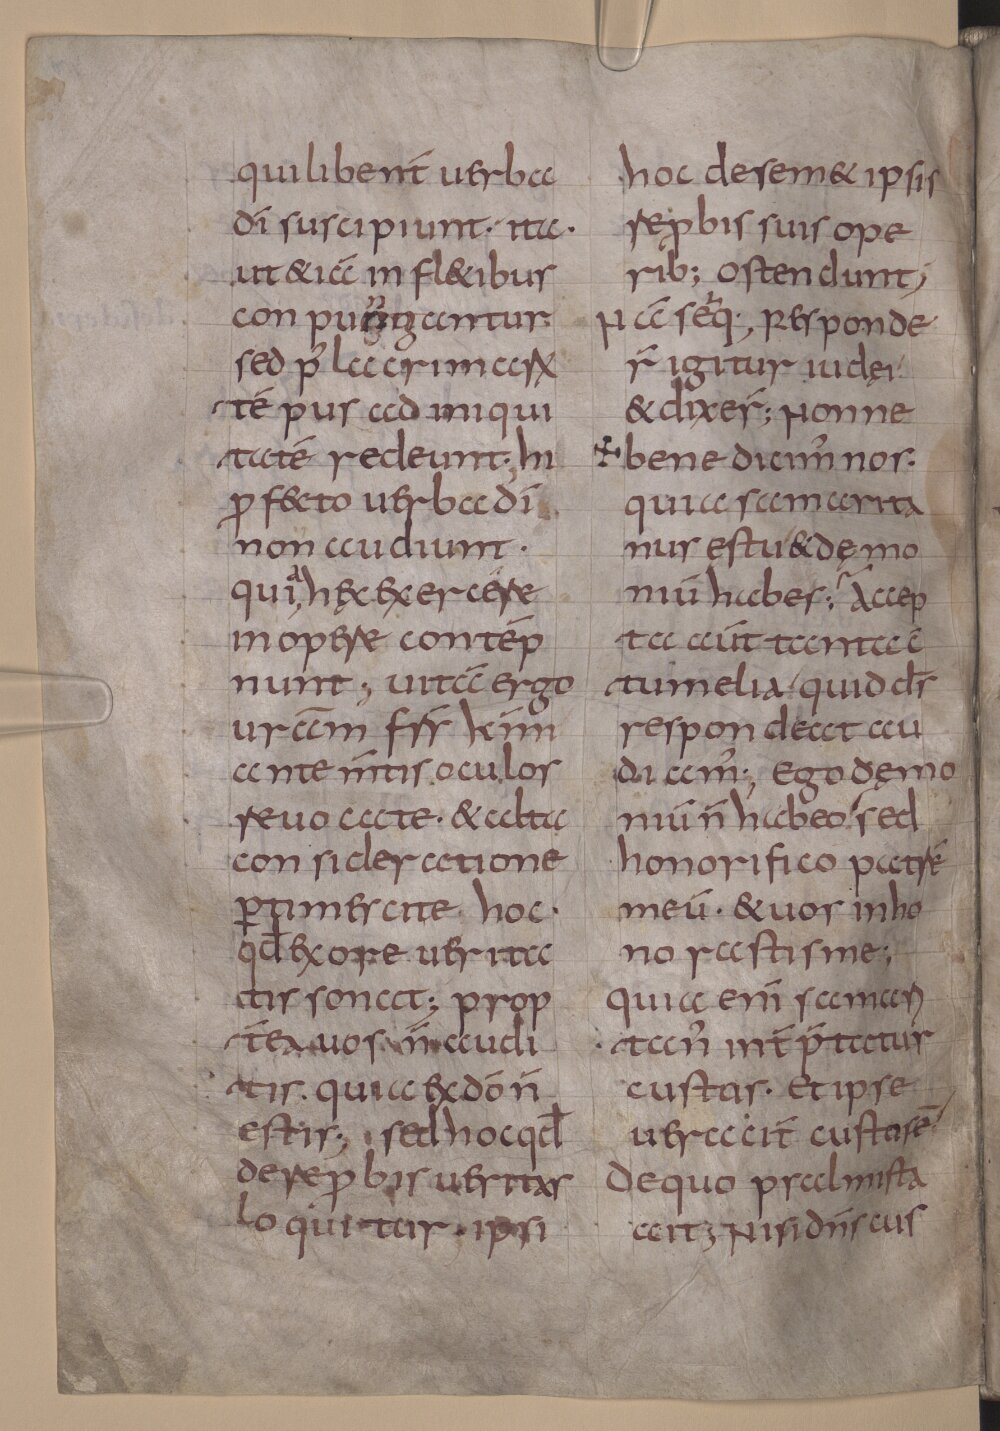 qui libent̄ uerba
dī suscipiunt· ita·
ut & iā in fl&ibus
conpungantur·
sed p̄ lacrimas ex
tē pus ad iniqui
tatē redeunt· hi
ꝓfecto uerba dī
non audiunt·
quia hęc exercere
in opere contēp
nunt; uitā ergo
urām fr̄s kīmi
ante m̄tis oculos
reuocate· & alta
consideratione
ꝑtimescite hoc·
qd̄ ex ore uerita
tis sonat; prop
t̄ea uos n̄ audi
tis· quia ex dō n̄
estis; sed hoc qd̄
de reꝓbis ueritas
loquitur· ipsi
hoc de sem& ipsis
reꝓbi suis ope
rib; ostendunt;
Nā seq̄r; Responde
r̄ igitur iudei
& dixer̄; Nonne
bene dicim̄ nos·
quia samarita
nus es tu & dęmo
niū habes; Accep
ta aūt tanta cō
tumelia quid dn̄s
respondeat au
diam̄; Ego dęmo
niū n̄ habeo sed
honorifico patrē
meū· & uos inho
norastis me;
quia eni samari
tan̄ int̄p̄tatur
custus· Et ipse
ueraciť custus ē
De quo psalmista
ait; Nisi dn̄s cus